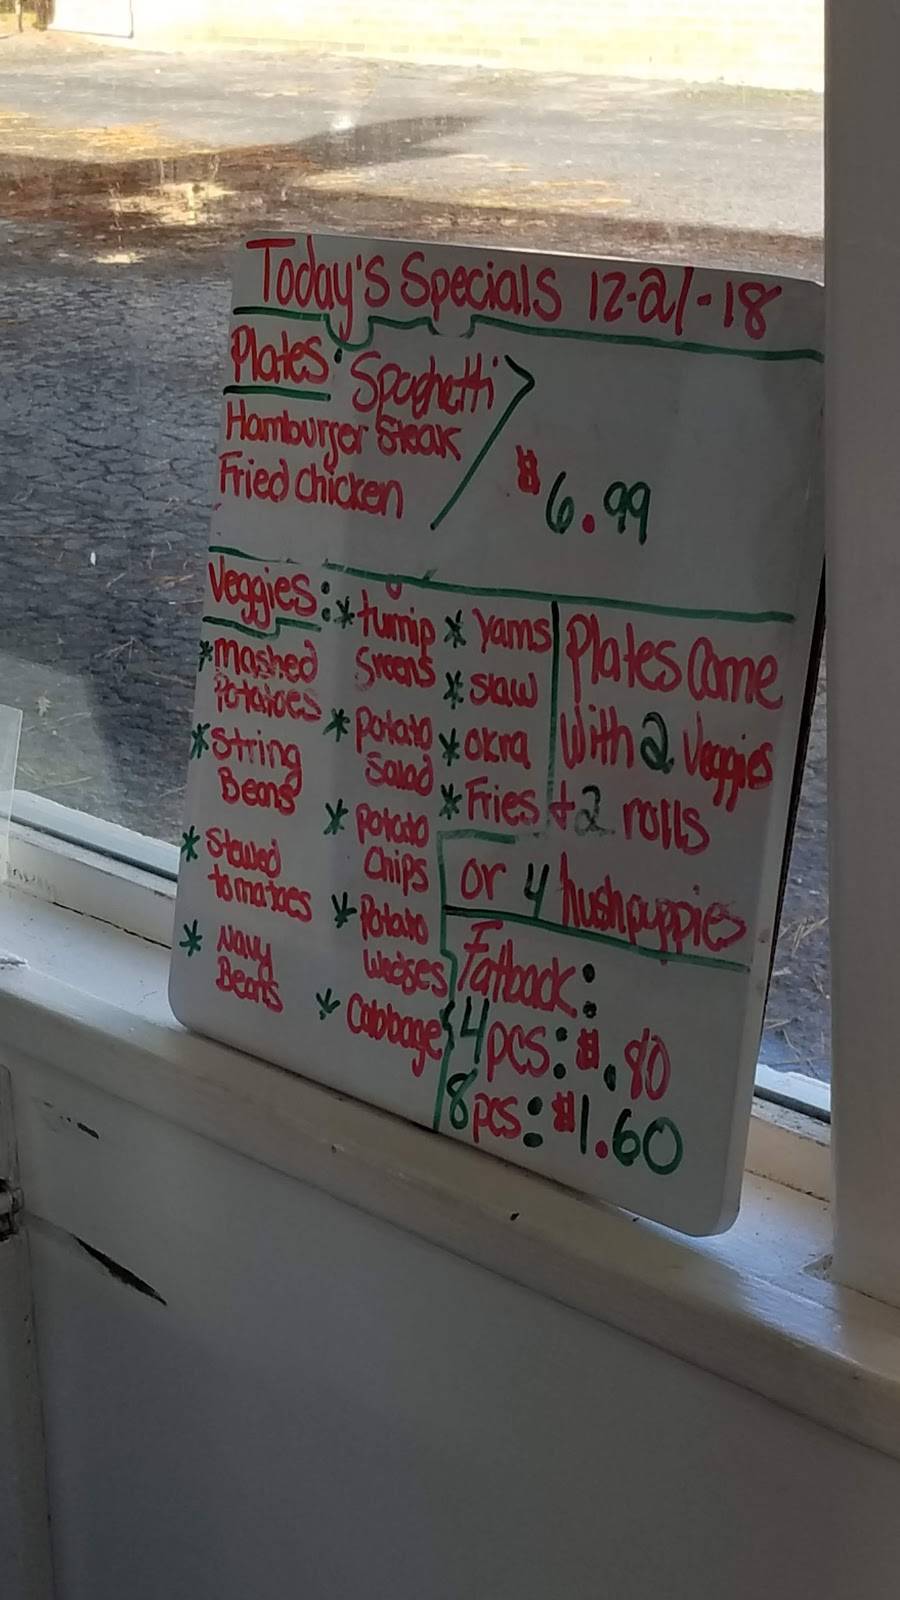 Today's Specials 12-21-18
Plates: Spaghetti
Hamburger Steak
Fried Chicken
$6.99
Veggies:
* Mashed
Potatoes
* String
Beans
* Stewed
tomatoes
* Navy
Beans
* turnip
Greens
* Potato
Salad
* Potato
Chips
* Potato
Wedges
* Cabbage
* Yams
* Slaw
* Okra
* Fries
Plates Come
With 2 Veggies
+ 2 rolls
or 4 hushpuppies
Fatback:
4 pcs: $.80
8 pcs: $1.60